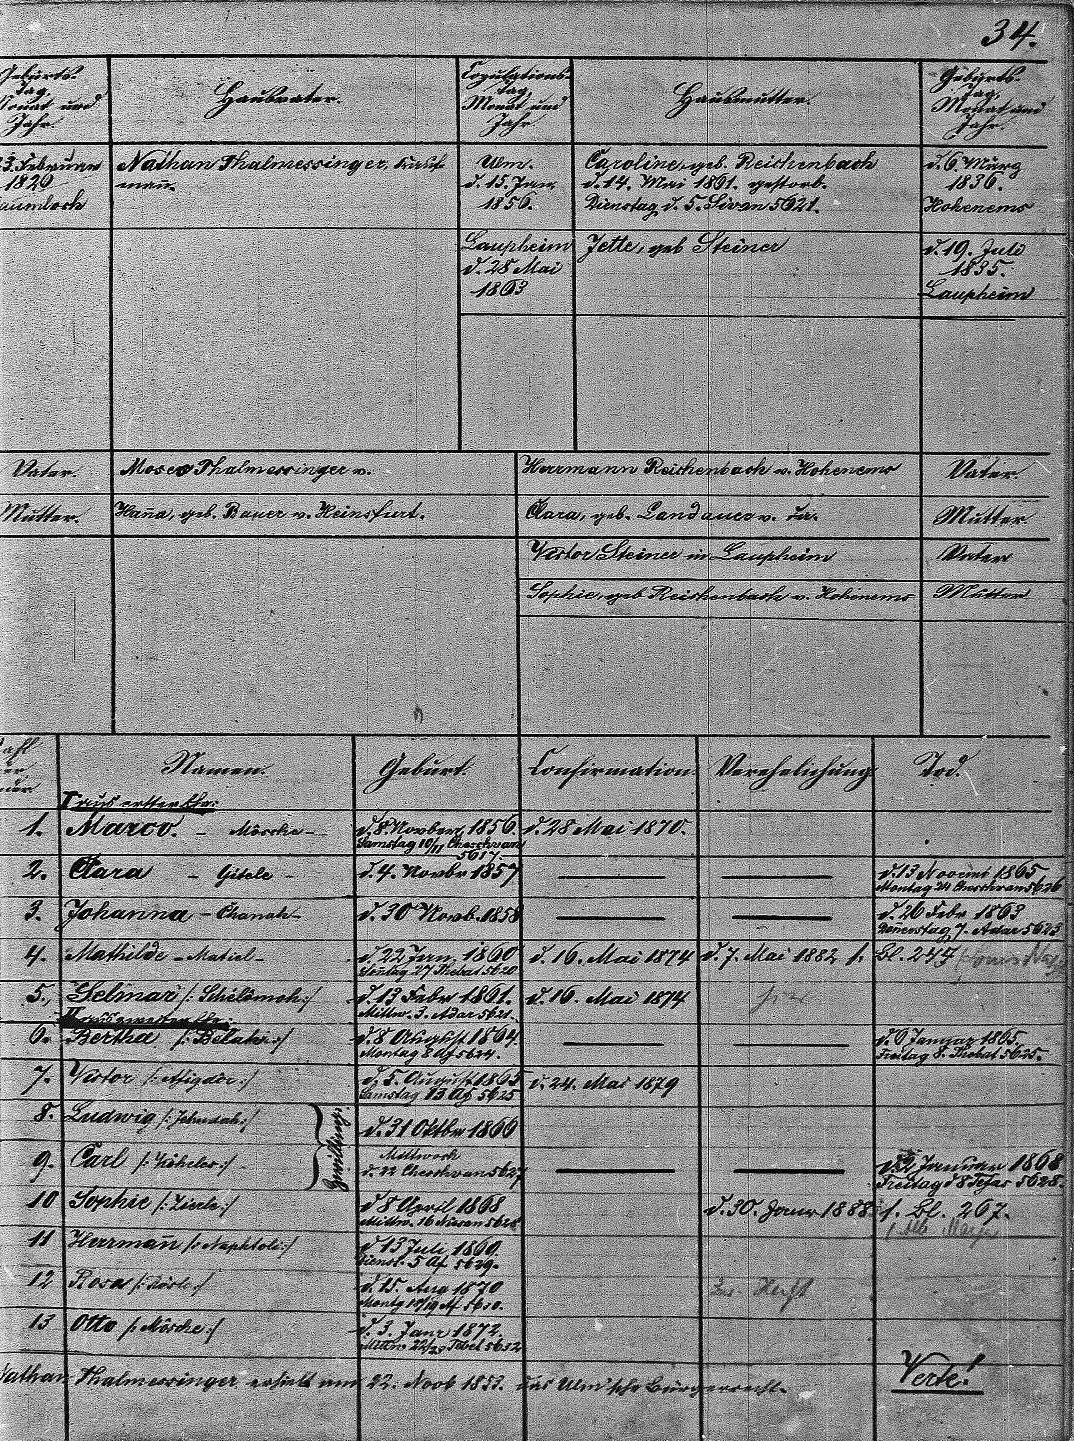 34.
Geburts-
Tag,
Monat und
Jahr.
Hausvater.
Copulations-
Tag,
Monat und
Jahr
Hausmutter.
Geburts-
Tag,
Monat und
Jahr.
23. Februar
1829
Nathan Thalmessinger, Kauf-
mann.
Ulm.
d. 15. Jan.
1856.
Caroline, geb. Reichenbach
d. 14. Mai 1861. gestorb.
Dienstag d. 5. Sivan 5621.
d. 6. März
1836.
Hohenems
Laupheim
d. 28 Mai
1863
Jette, geb Steiner
d. 19. Juli
1835.
Laupheim
Vater.
Moses Thalmessinger v.
Herrmann Reichenbach v. Hohenems
Vater.
Mutter.
Hana, geb. Bauer v. Heinsfurt.
Clara, geb. Landauer v. da.
Mutter
Victor Steiner in Laupheim
Vater
Sophie, geb Reichenbach v. Hohenems
Mutter
Namen.
Geburt.
Confirmation.
Verehelichung
Tod.
I aus erster Ehe:
1. Marco. - Mosche -
d. 8. Novber 1856.
Samstag 10/11 Cheschvan
5617.
d. 28 Mai 1870.
2. Clara - Gitele -
d. 4. Novbr 1857
d. 13 Novemb 1865
Montag 24 Cheschvan 5626
3. Johanna - Chanah -
d. 30 Novb. 1858
d. 26 Febr 1863
Donnerstag 7. Adar 5623
4. Mathilde -
d. 22 Jan. 1860
Sontag 27 Thebet 5620
d. 16. Mai 1874
d. 7. Mai 1882 f.
Bl. 247
5. Selmar /: Schelomoh :/
d. 13 Febr 1861.
Mittw. 3. Adar 5621.
d. 16. Mai 1874
II aus zweiter Ehe:
6. Bertha
d. 8 August 1864
Montag 5624.
d. 6 Januar 1865.
Freitag 8. Thebet 5625.
7. Victor
d. 5. August 1865
Samstag 13 Af 5625
d. 24. Mai 1879
8. Ludwig /: Jehudah :/
Zwillinge.
d. 31 Oktbr 1866
9. Carl
Mittwoch
d. 22 Cheschvan 5627
d. 3 Januar 1868
Freitag d 8 Tebet 5628.
10 Sophie
d 8 April 1868
Mittw. 16 Nissan 5628
d. 30. Janr 1888.
f. Bl. 267.
11 Herrman /: Naphtoli :/
d 13 Juli 1869.
Dienst. 5 Af 5629.
12 Rosa
d. 15. Aug 1870
Montg 18/19 Af. 5630.
13 Otto /: Mosche :/
d. 3. Janr 1872.
Mittw 22/23 Tebet 5632
Nathan Thalmessinger erhielt am 22. Novb 1853. das Ulm'sche Bürgerrecht.
Verte!